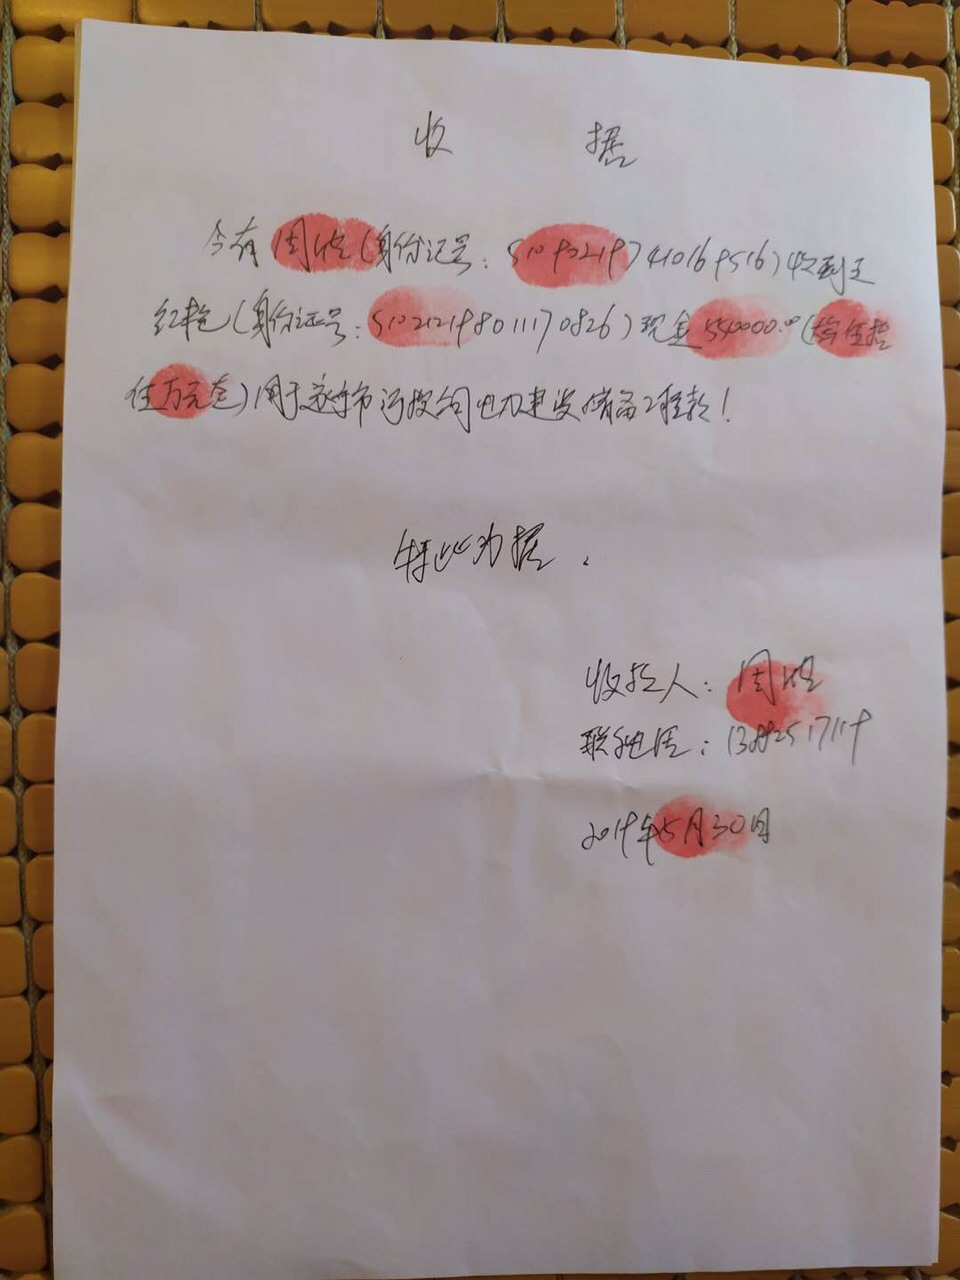 收 据
今有周 (身份证号: 510902197410169516) 收到王
红艳 (身份证号: 510212198011170826) 现金 550000.00 (
伍万元 ) 用于 市 投 公司电力建设储备工程款!
特此为据.
收款人: 周
联系电话: 13882517119
2019年5月30日